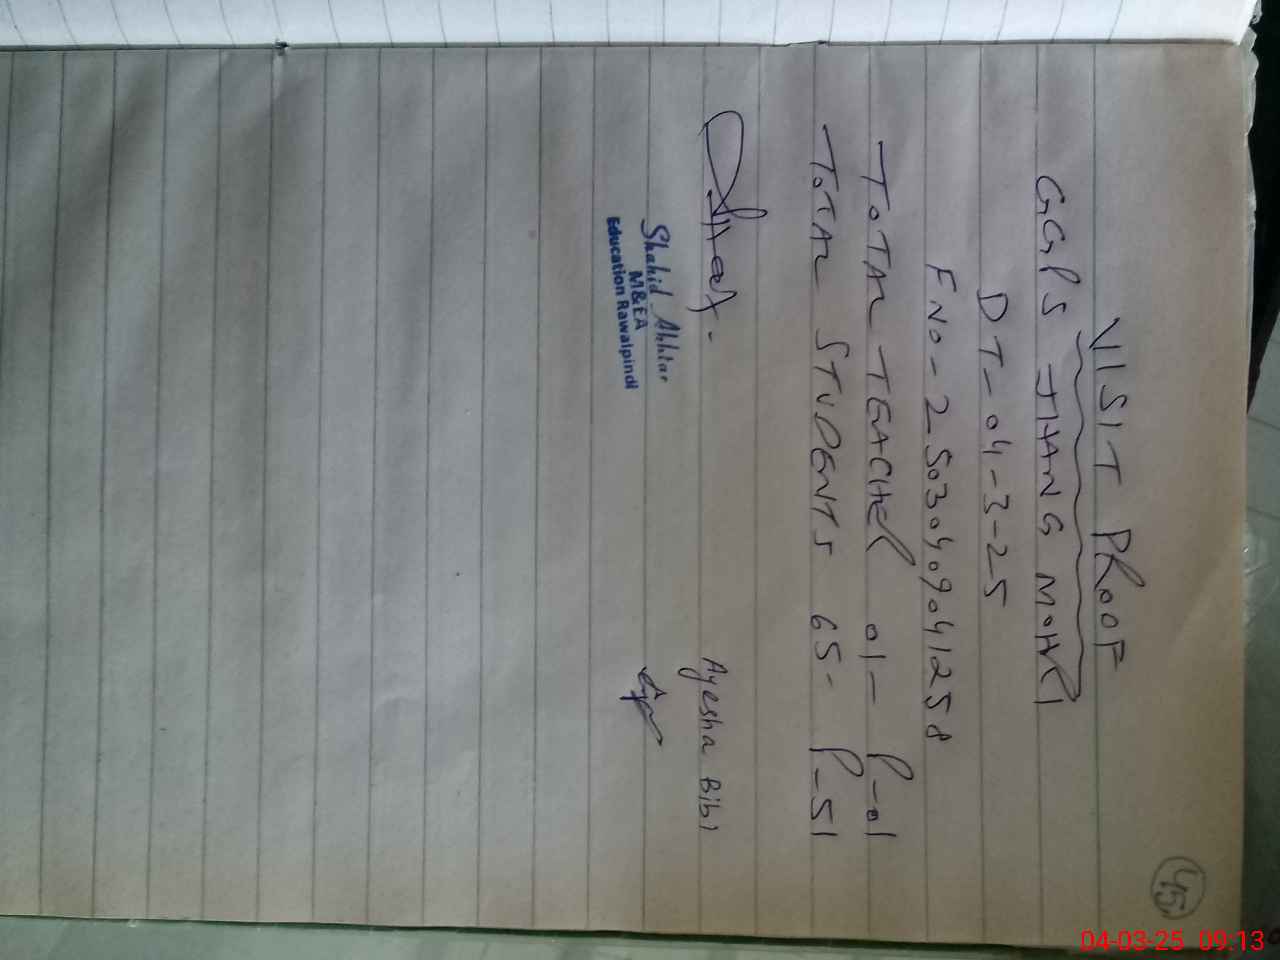 45
VISIT PROOF
GGPS JHANG MOHRI
DT-04-3-25
FNo-25030409041258
TOTAL TEACHER 01- P-01
TOTAL STUDENTS 65- P-51
Ayesha Bibi
Shahid Akhtar
M&EA
Education Rawalpindi
04-03-25 09:13